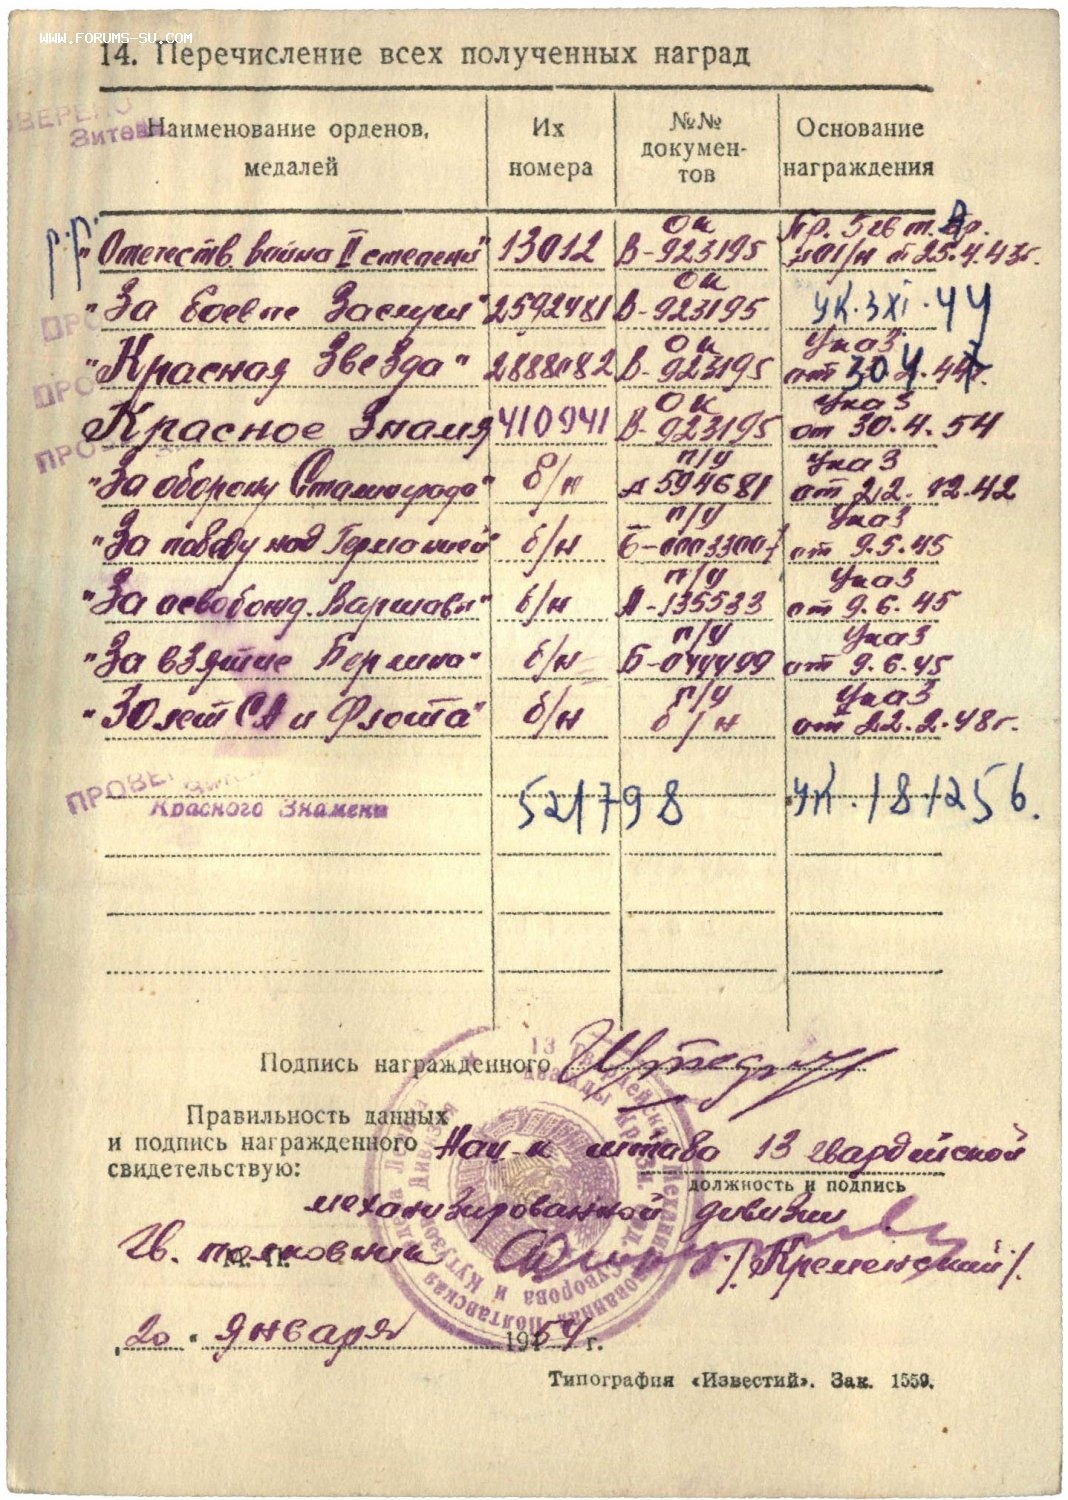 WWW.FORUMS-SU.COM
14. Перечисление всех полученных наград
Наименование орденов, медалей
Их номера
№№ документов
Основание награждения
"Отечеств. война II степени" 13012 ОК В-923195 Пр. 5 гв т. Ар. №01/н от 25.4.43г.
"За боевые Заслуги" 2592481 ОК В-923195 УК. 3 XI. 44
"Красная Звезда" 2888082 ОК В-923195 Указ от 30 44г.
Красное Знамя 410941 ОК В-923195 Указ от 30.4.54
"За оборону Сталинграда" б/н п/у А 594681 Указ от 22.12.42
"За победу над Германией" б/н п/у Указ от 9.5.45
"За освобожд. Варшавы" б/н п/у А-135533 Указ от 9.6.45
"За взятие Берлина" б/н п/у Б-044499 Указ от 9.6.45
"30 лет СА и Флота" б/н п/у б/н Указ от 22.2.48г.
Красного Знамени 521798 УК. 181256.
Подпись награжденного
Правильность данных
и подпись награжденного
свидетельствую:
Нач-к штаба 13 гвардейской
должность и подпись
механизированной дивизии
Гв. полковник /Кременский/
М. П.
"20" января 1954 г.
Типография «Известий». Зак. 1559.